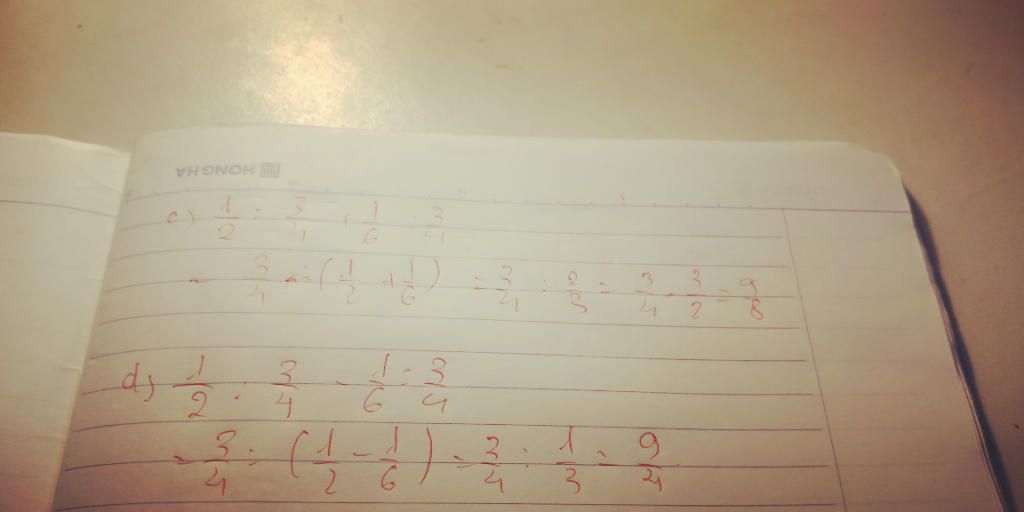 HONG HA
c) 1/2 : 3/4 + 1/6 : 3/4
= 3/4 : (1/2 + 1/6) = 3/4 : 2/3 = 3/4 . 3/2 = 9/8
d) 1/2 : 3/4 - 1/6 : 3/4
= 3/4 : (1/2 - 1/6) = 3/4 : 1/3 = 9/4